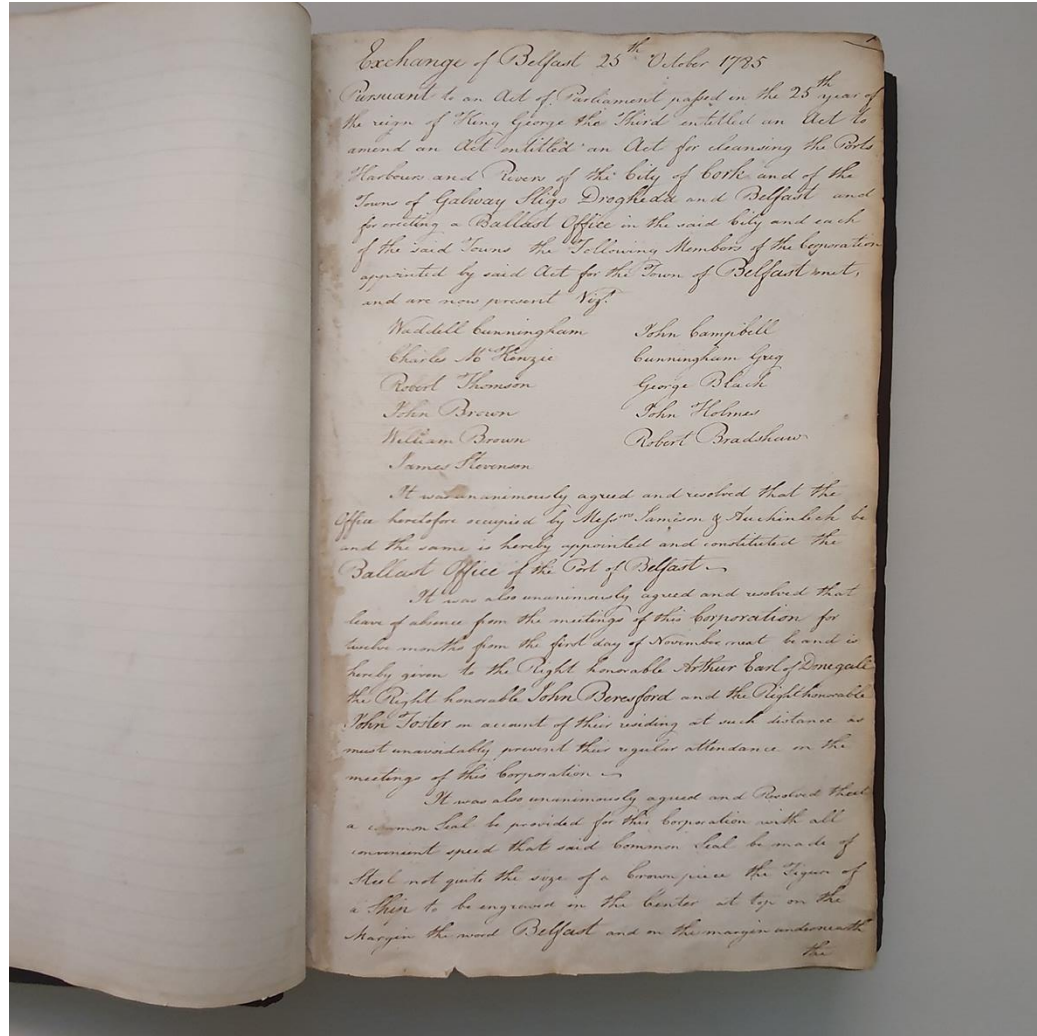 Exchange of Belfast 25th October 1785
Pursuant to an Act of Parliament passed in the 25th year of
the reign of King George the Third entitled an Act to
amend an Act entitled an Act for cleansing the Ports
Harbours and Rivers of the City of Cork and of the
Towns of Galway Sligo Drogheda and Belfast and
for erecting a Ballast Office in the said City and each
of the said Towns the Following Members of the Corporation
appointed by said Act for the Town of Belfast met,
and are now present Vizt.
Waddell Cunningham John Campbell
Charles McKenzie Cunningham Greg
Robert Thomson George Black
John Brown John Holmes
William Brown Robert Bradshaw
James Stevenson
It was unanimously agreed and resolved that the
Office heretofore occupied by Messrs Jamison & Auchinleck be
and the same is hereby appointed and constituted the
Ballast Office of the Port of Belfast
It was also unanimously agreed and resolved that
leave of absence from the meetings of this Corporation for
twelve months from the first day of November next be and is
hereby given to the Right honorable Arthur Earl of Donegall
the Right honorable John Beresford and the Right honorable
John Foster on account of their residing at such distance as
must unavoidably prevent their regular attendance on the
meetings of this Corporation
It was also unanimously agreed and Resolved that
a common Seal be provided for this Corporation with all
convenient speed that said Common Seal be made of
Steel not quite the size of a Crown piece the Figure of
a Ship to be engraved in the Center at top on the
Margin the word Belfast and on the margin underneath
the